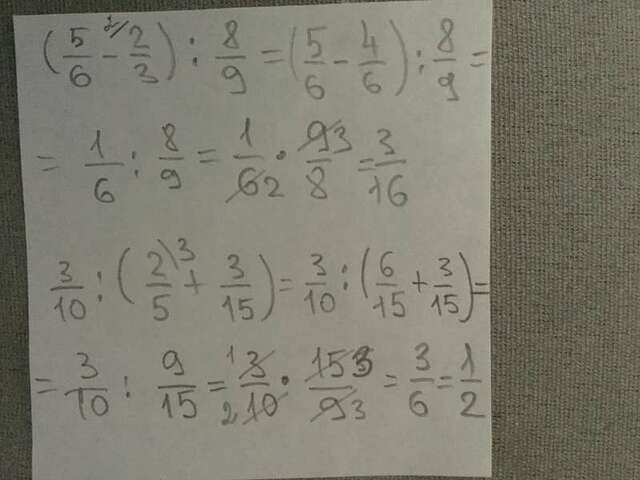 (5/6 - 2/ 2/3) : 8/9 = (5/6 - 4/6) : 8/9 =
= 1/6 : 8/9 = 1/62 · 93/8 = 3/16
3/10 : (2/5 )3 + 3/15) = 3/10 : (6/15 + 3/15) =
= 3/10 : 9/15 = 1 3/2 10 · 15 3/9 3 = 3/6 = 1/2